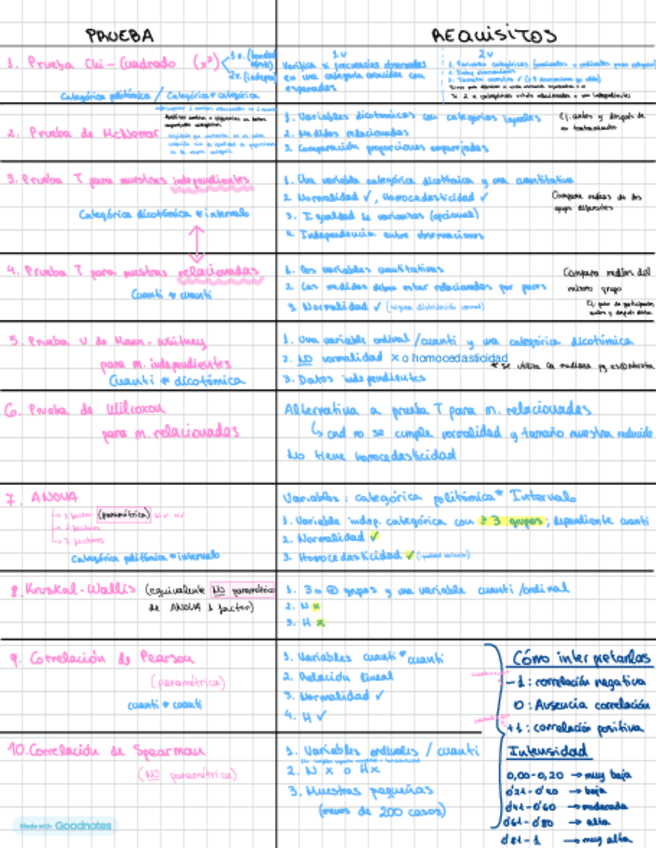 PRUEBA
REQUISITOS
1. Prueba Chi-Cuadrado (x²)
1 v. (bondad
2v. (indepen
Categórica politómica / Categórica * categórica
1 v
Verifica si frecuencias observadas
en una categoría coinciden con
esperadas
2 v
2. Prueba de McNemar
1. Variables dicotómicas con categorías iguales
2. Medidas relacionadas
3. Comparación proporciones emparejadas
Ej: antes y después de
un tratamiento
3. Prueba T para muestras independientes
Categórica dicotómica * intervalo
1. Una variable categórica dicotómica y una cuantitativa
2. Normalidad ✓, Homocedasticidad ✓
3. Igualdad de varianzas (opcional)
4. Independencia entre observaciones
Compara medias de dos
grupos diferentes
4. Prueba T para muestras relacionadas
Cuanti * cuanti
1. Dos variables cuantitativas
2. Las medidas deben estar relacionadas por pares
3. Normalidad ✓
Compara medias del
mismo grupo
5. Prueba U de Mann-Whitney
para m. independientes
Cuanti * dicotómica
1. Una variable ordinal/cuanti y una categórica dicotómica
2. NO normalidad x o homocedasticidad
3. Datos independientes
* se utiliza la mediana
6. Prueba de Wilcoxon
para m. relacionadas
Alternativa a prueba T para m. relacionadas
↳ cnd no se cumple normalidad y tamaño muestra reducido
No tiene homocedasticidad
7. ANOVA
→ 1 factor (paramétrica)
→ 2 factores
→ 3 factores
Categórica politómica * intervalo
Variables: categórica politómica * Intervalo
1. Variable indep. categórica con ≥ 3 grupos, dependiente cuanti
2. Normalidad ✓
3. Homocedasticidad ✓
8. Kruskal-Wallis (equivalente NO paramétrico
de ANOVA 1 factor)
1. 3 o ⊕ grupos y una variable cuanti/ordinal
2. N x
3. H x
9. Correlación de Pearson
(paramétrica)
cuanti * cuanti
1. Variables cuanti * cuanti
2. Relación lineal
3. Normalidad ✓
4. H ✓
Cómo interpretarlas
-1: correlación negativa
0: Ausencia correlación
+1: correlación positiva
10. Correlación de Spearman
(NO paramétrica)
1. Variables ordinales / cuanti
2. N x o H x
3. Muestras pequeñas
(menos de 200 casos)
Intensidad
0,00-0,20 → muy baja
0'21-0'40 → baja
0'41-0'60 → moderada
0'61-0'80 → alta
0'81-1 → muy alta
Made with Goodnotes